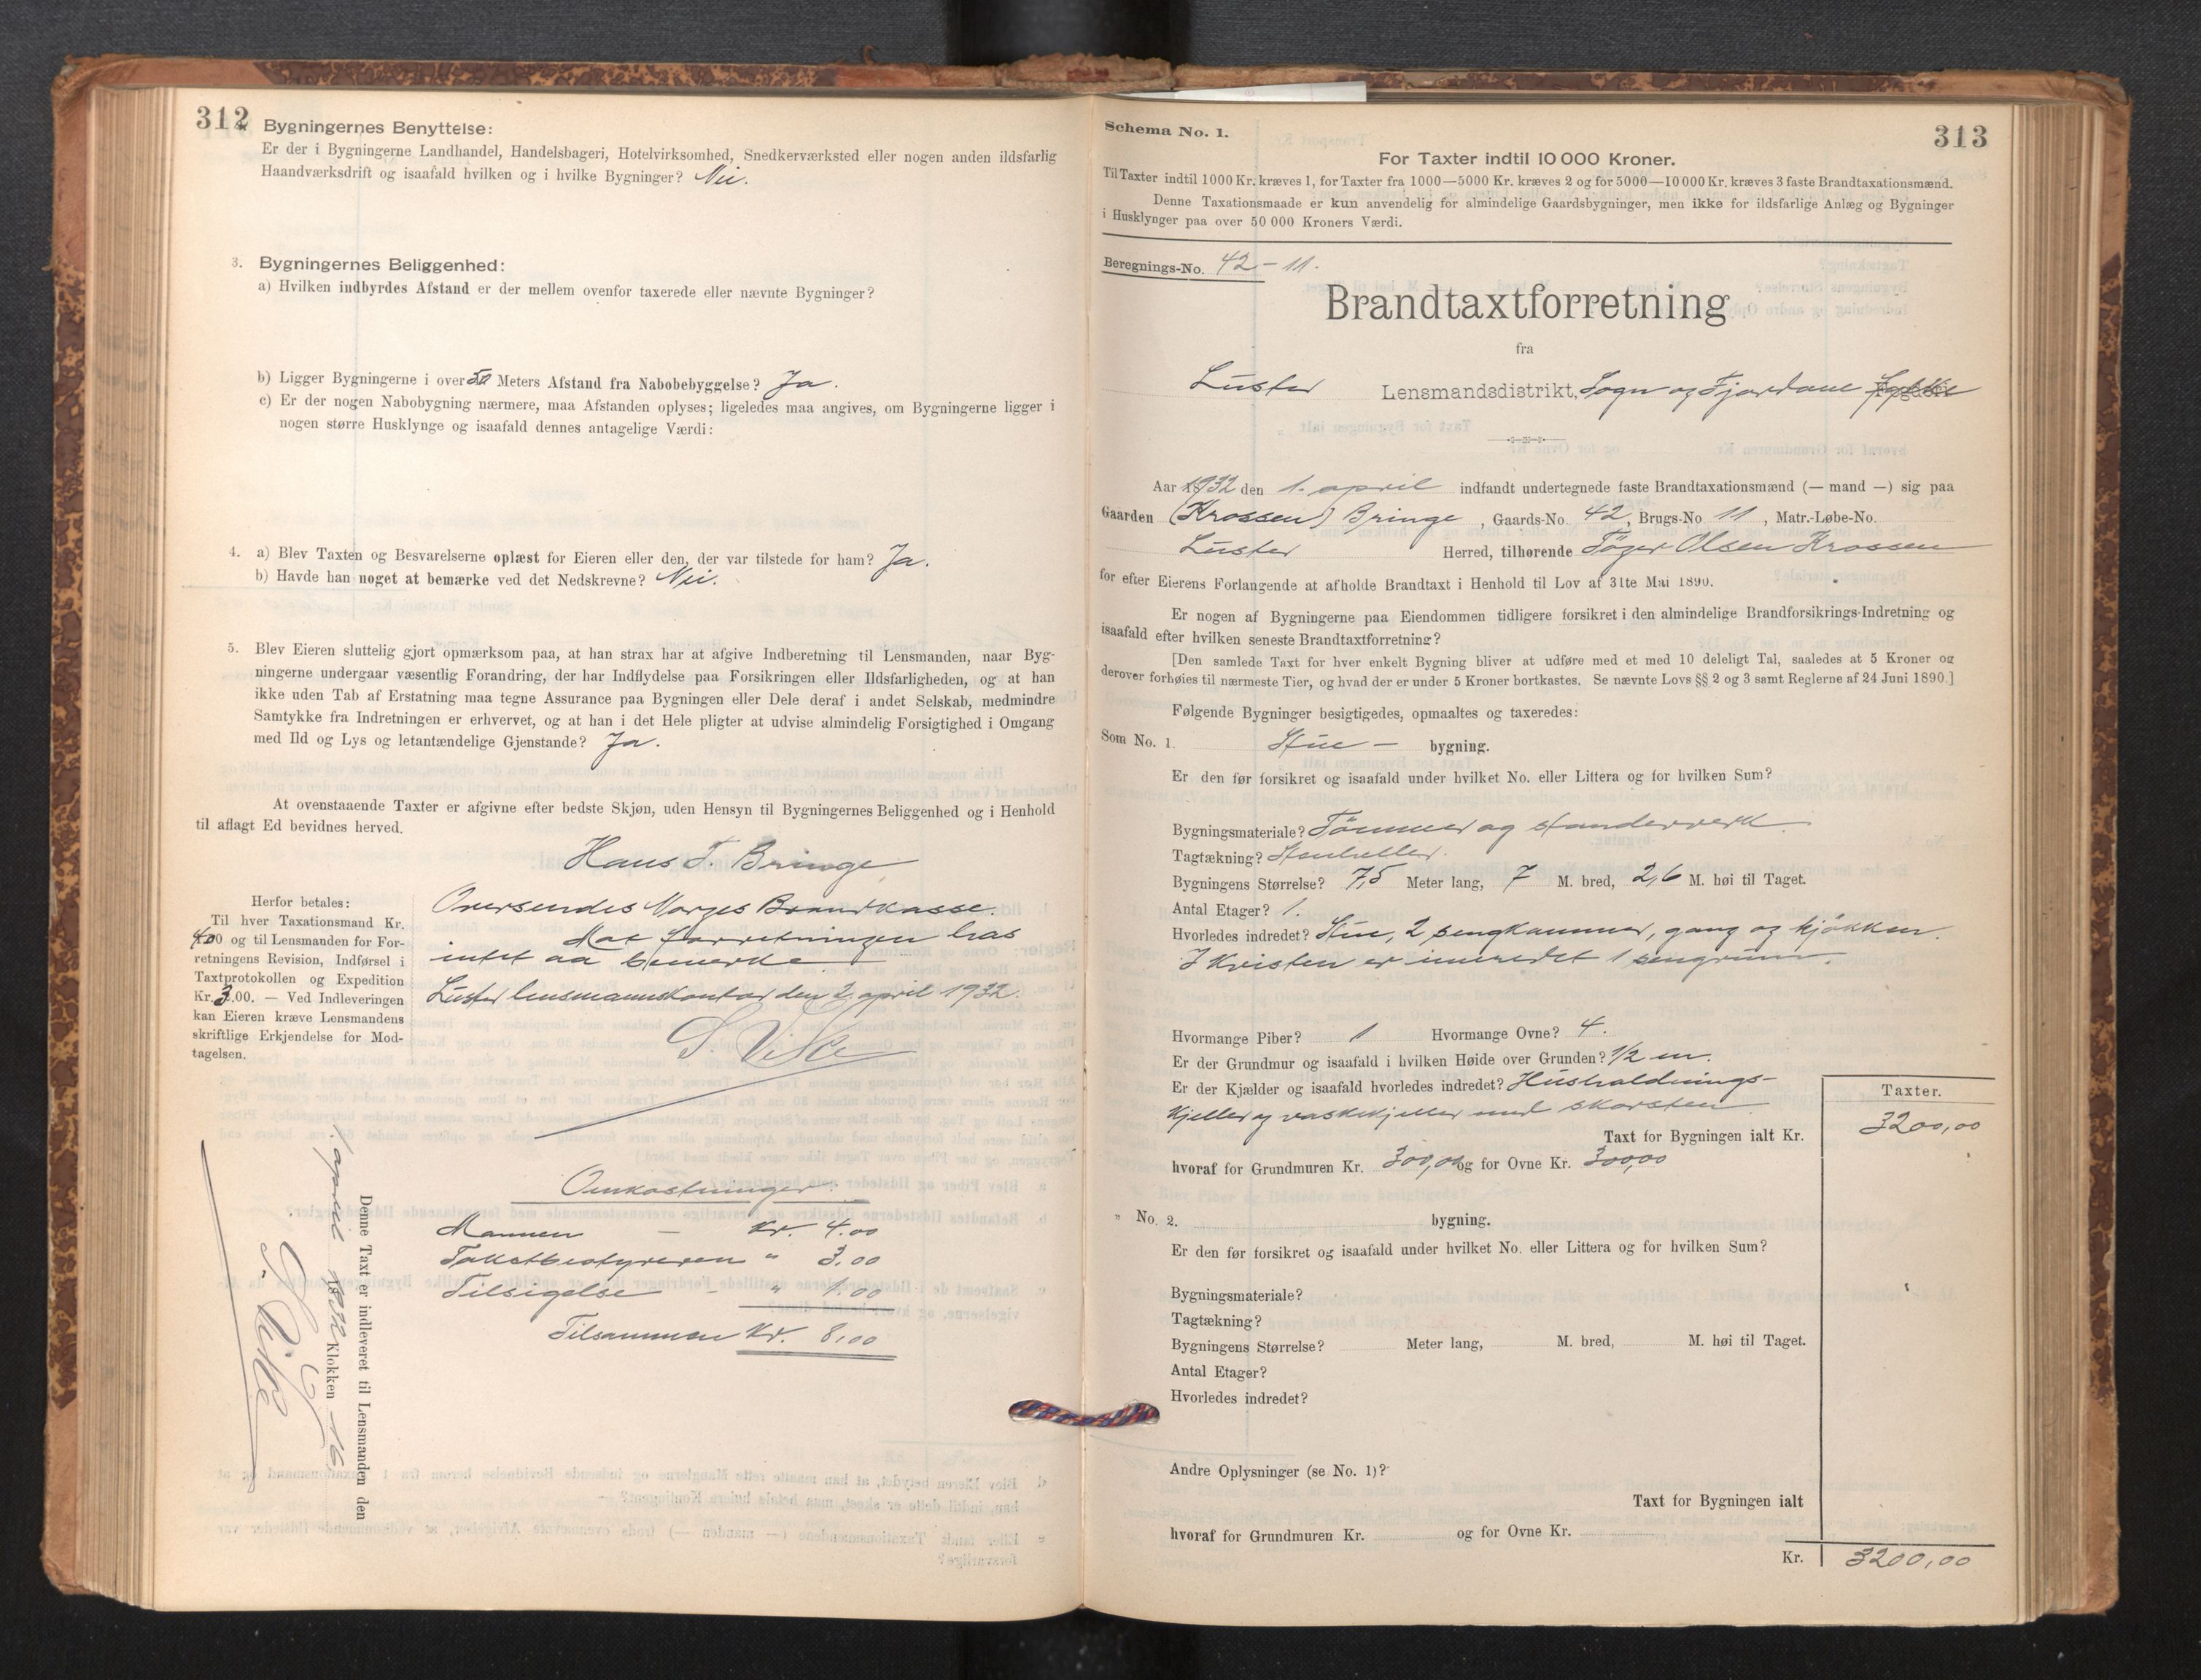 312
2. Bygningernes Benyttelse:
Er der i Bygningerne Landhandel, Handelsbageri, Hotelvirksomhed, Snedkerværksted eller nogen anden ildsfarlig
Haandværksdrift og isaafald hvilken og i hvilke Bygninger? Nei.
3. Bygningernes Beliggenhed:
a) Hvilken indbyrdes Afstand er der mellem ovenfor taxerede eller nævnte Bygninger?
b) Ligger Bygningerne i over 50 Meters Afstand fra Nabobebyggelse? Ja.
c) Er der nogen Nabobygning nærmere, maa Afstanden oplyses; ligeledes maa angives, om Bygningerne ligger i
nogen større Husklynge og isaafald dennes antagelige Værdi:
4. a) Blev Taxten og Besvarelserne oplæst for Eieren eller den, der var tilstede for ham? Ja.
b) Havde han noget at bemærke ved det Nedskrevne? Nei.
5. Blev Eieren sluttelig gjort opmærksom paa, at han strax har at afgive Indberetning til Lensmanden, naar Byg-
ningerne undergaar væsentlig Forandring, der har Indflydelse paa Forsikringen eller Ildsfarligheden, og at han
ikke uden Tab af Erstatning maa tegne Assurance paa Bygningen eller Dele deraf i andet Selskab, medmindre
Samtykke fra Indretningen er erhvervet, og at han i det Hele pligter at udvise almindelig Forsigtighed i Omgang
med Ild og Lys og letantændelige Gjenstande? Ja.
At ovenstaaende Taxter er afgivne efter bedste Skjøn, uden Hensyn til Bygningernes Beliggenhed og i Henhold
til aflagt Ed bevidnes herved.
Hans T. Bringe
Herfor betales:
Til hver Taxationsmand Kr.
4.00 og til Lensmanden for For-
retningens Revision, Indførsel i
Taxtprotokollen og Expedition
Kr. 3.00. — Ved Indleveringen
kan Eieren kræve Lensmandens
skriftlige Erkjendelse for Mod-
tagelsen.
Oversendes Norges Brandkasse.
Mot forretningen has
intet aa bemerke
Luster lensmannskontor den 2. april 1932.
Denne Taxt er indleveret til Lensmanden den
1. april 1932 Klokken 16.
Omkostninger:
Mannen — Kr. 4.00
Takstbestyreren " 3.00
Tilsigelse - " 1.00
Tilsammen Kr. 8.00
313
Schema No. 1.
For Taxter indtil 10 000 Kroner.
Til Taxter indtil 1000 Kr. kræves 1, for Taxter fra 1000—5000 Kr. kræves 2 og for 5000—10 000 Kr. kræves 3 faste Brandtaxationsmænd.
Denne Taxationsmaade er kun anvendelig for almindelige Gaardsbygninger, men ikke for ildsfarlige Anlæg og Bygninger
i Husklynger paa over 50 000 Kroners Værdi.
Beregnings-No. 42 - 11.
Brandtaxtforretning
fra
Luster Lensmandsdistrikt, Sogn og Fjordane fylke
Aar 1932 den 1. april indfandt undertegnede faste Brandtaxationsmænd (— mand —) sig paa
Gaarden (Krossen) Bringe, Gaards-No. 42, Brugs-No. 11, Matr.-Løbe-No.
Luster Herred, tilhørende Tøger Olsen Krossen
for efter Eierens Forlangende at afholde Brandtaxt i Henhold til Lov af 31te Mai 1890.
Er nogen af Bygningerne paa Eiendommen tidligere forsikret i den almindelige Brandforsikrings-Indretning og
isaafald efter hvilken seneste Brandtaxtforretning?
[Den samlede Taxt for hver enkelt Bygning bliver at udføre med et med 10 deleligt Tal, saaledes at 5 Kroner og
derover forhøies til nærmeste Tier, og hvad der er under 5 Kroner bortkastes. Se nævnte Lovs §§ 2 og 3 samt Reglerne af 24 Juni 1890.]
Følgende Bygninger besigtigedes, opmaaltes og taxeredes:
Som No. 1. Stue - bygning.
Er den før forsikret og isaafald under hvilket No. eller Littera og for hvilken Sum?
Bygningsmateriale? Tömmer og standerverk.
Tagtækning? Stenheller.
Bygningens Størrelse? 7,5 Meter lang, 7 M. bred, 2,6 M. høi til Taget.
Antal Etager? 1.
Hvorledes indredet? Stue, 2 sengkammer, gang og kjøkken.
I Kvisten er innredet 1 sengrum.
Hvormange Piber? 1 Hvormange Ovne? 4.
Er der Grundmur og isaafald i hvilken Høide over Grunden? 1/2 m.
Er der Kjælder og isaafald hvorledes indredet? Husholdnings-
kjeller og vaskekjeller med skorsten
Taxter.
Taxt for Bygningen ialt Kr. 3200,00
hvoraf for Grundmuren Kr. 300,00 og for Ovne Kr. 300,00
" No. 2. bygning.
Er den før forsikret og isaafald under hvilket No. eller Littera og for hvilken Sum?
Bygningsmateriale?
Tagtækning?
Bygningens Størrelse? Meter lang, M. bred, M. høi til Taget.
Antal Etager?
Hvorledes indredet?
Andre Oplysninger (se No. 1)?
Taxt for Bygningen ialt
hvoraf for Grundmuren Kr. og for Ovne Kr.
Kr. 3200,00